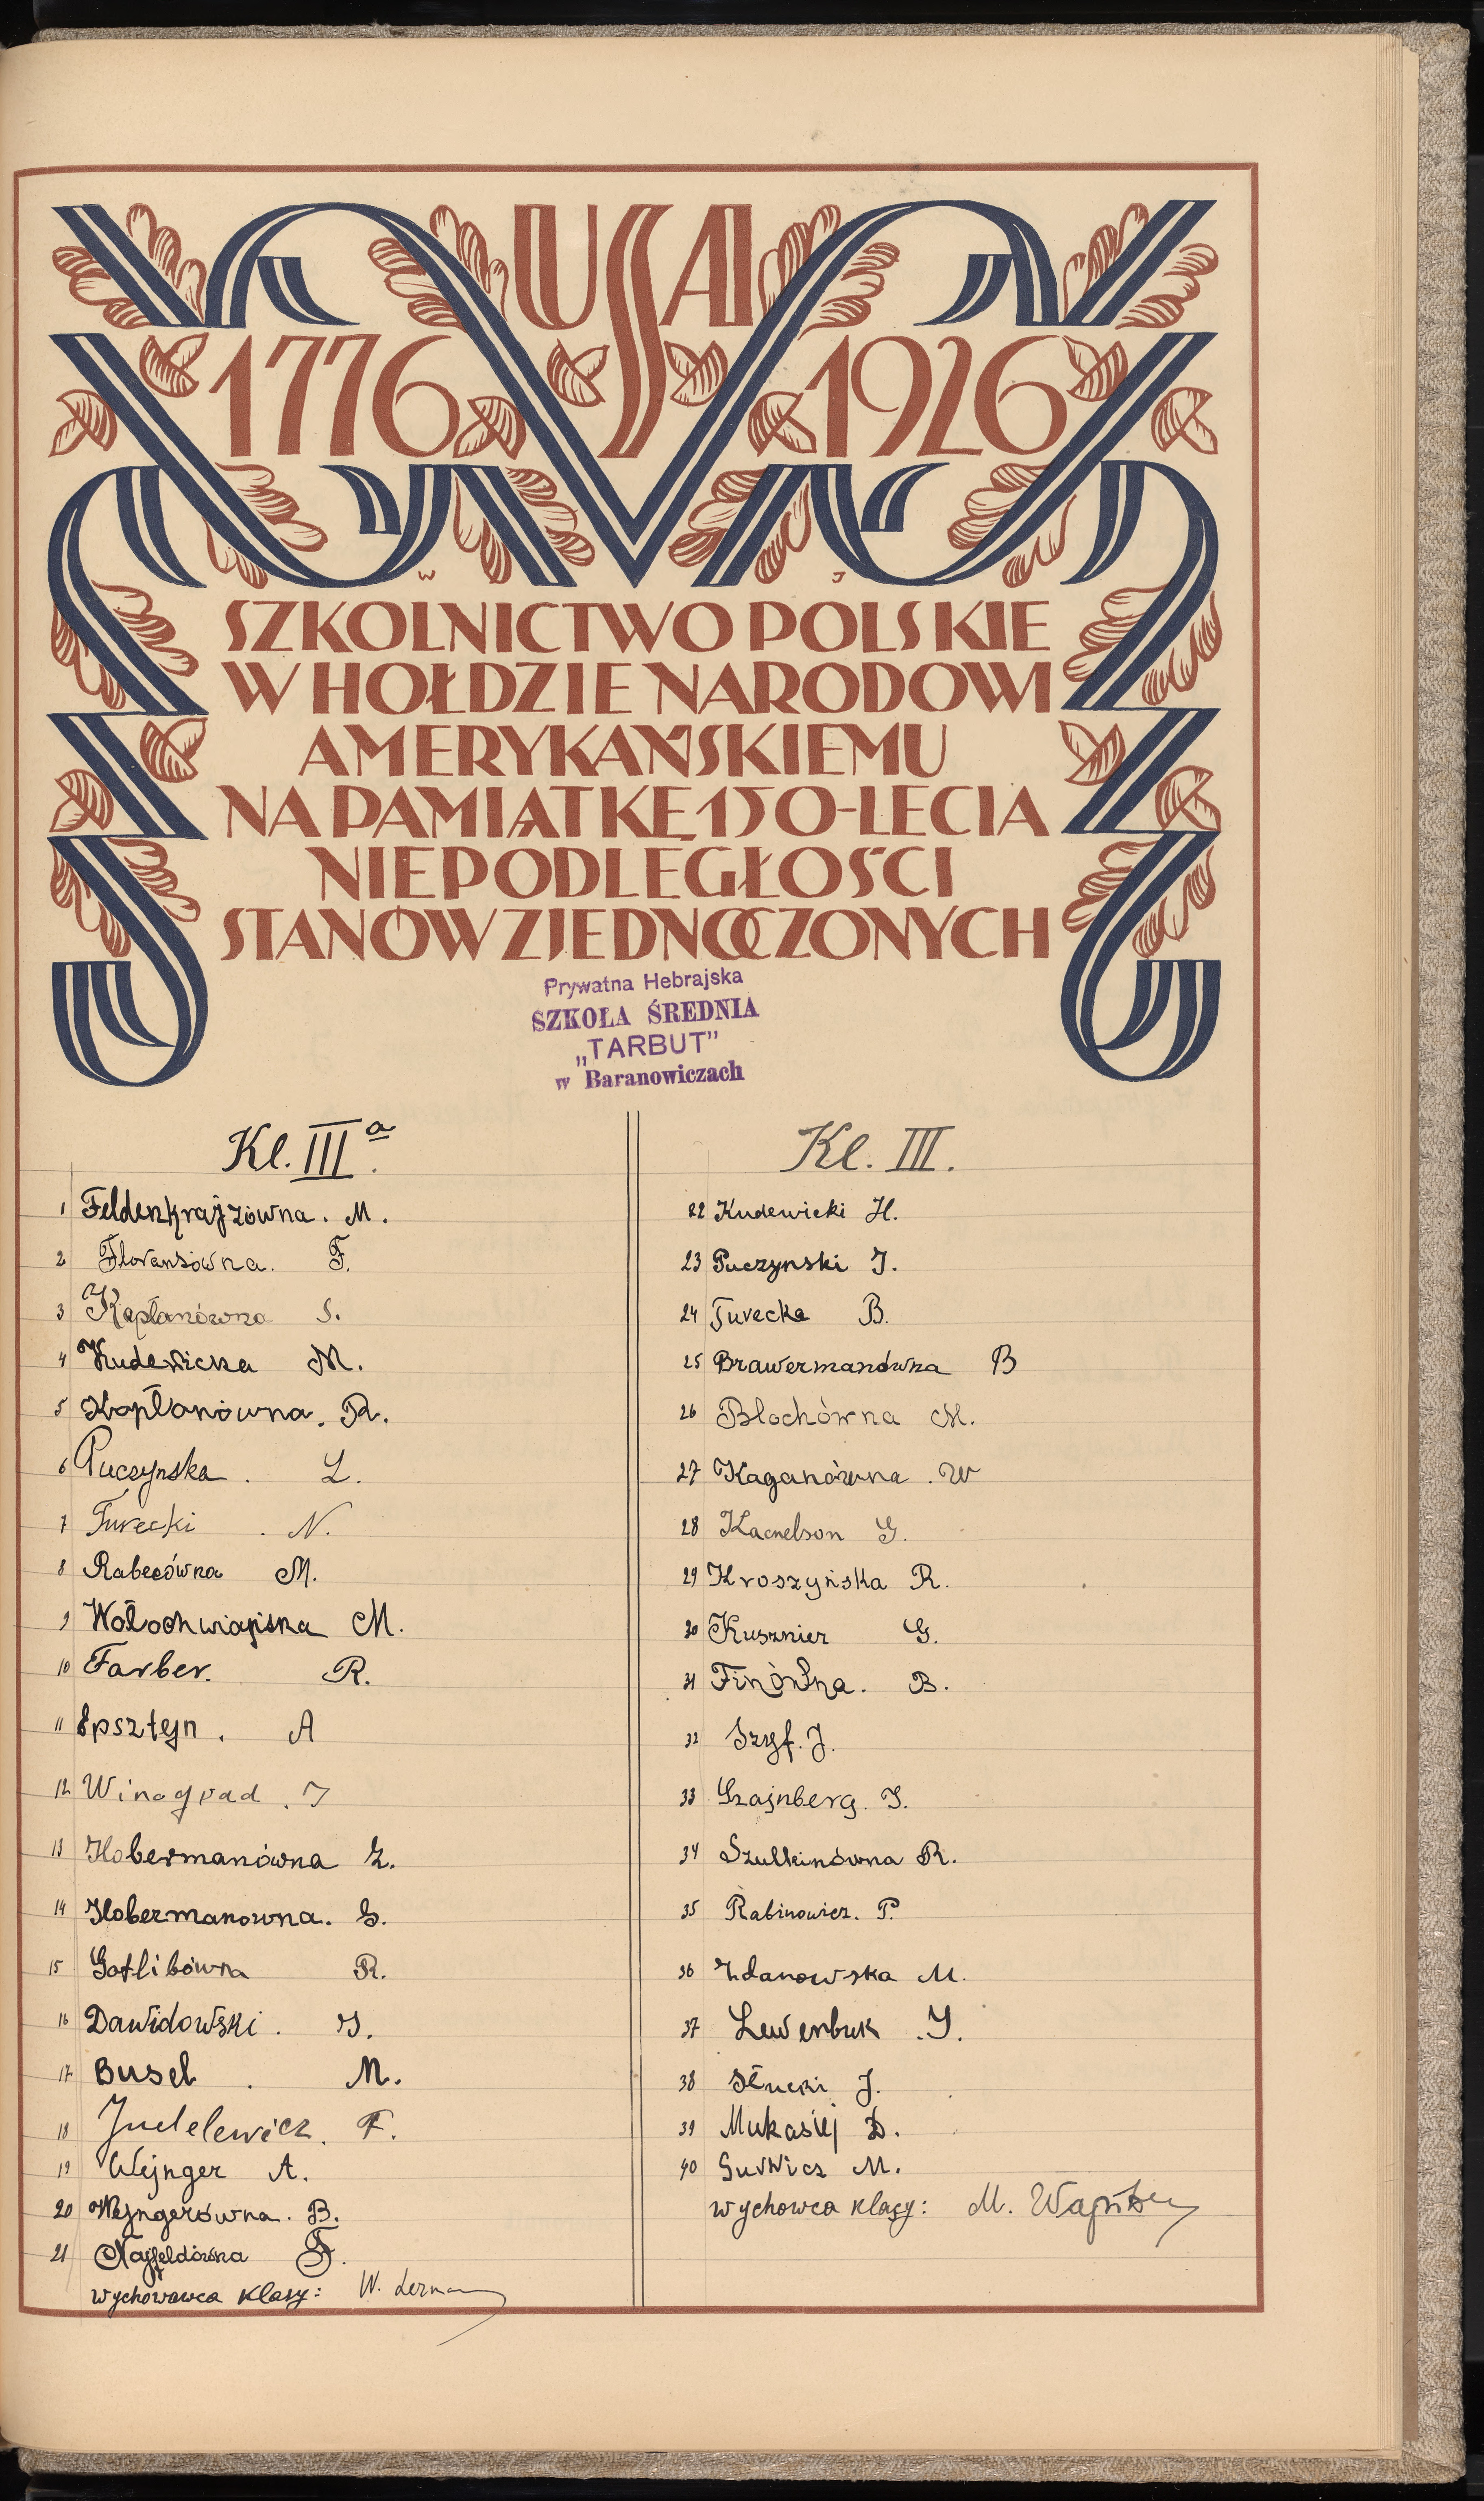 USA
1776 1926
W J
SZKOLNICTWO POLSKIE
W HOŁDZIE NARODOWI
AMERYKAŃSKIEMU
NA PAMIĄTKĘ 150-LECIA
NIEPODLEGŁOŚCI
STANÓW ZJEDNOCZONYCH
Prywatna Hebrajska
SZKOŁA ŚREDNIA
„TARBUT”
w Baranowiczach
Kl. III a.
1 Feldenkrajzówna. M.
2 Floransówna. F.
3 Kapłanówna S.
4 Kudewicka M.
5 Kapłanówna. R.
6 Puczynska. L.
7 Turecki. N.
8 Rabecówna M.
9 M.
10 Farber. R.
11 Epsztejn. A
12 Winograd. I
13 Hobermanówna Z.
14 Hobermanowna. S.
15 Gotlibówna R.
16 Dawidowski. J.
17 Busel. M.
18 Judelewicz. F.
19 Wejnger A.
20 Wejngerówna. B.
21 Najfeldówna F.
wychowawca klasy: W. Lerman
Kl. III.
22 Kudewicki H.
23 Puczynski J.
24 Turecka B.
25 Brawermanówna B
26 Blochówna M.
27 Kaganówna. W
28 Kacnelson G.
29 Kroszyńska R.
30 Kusznier G.
31 Finówna. B.
32 Szyf. J.
33 Szajnberg. J.
34 Szulkinówna R.
35 Rabinowicz. P.
36 Zdanowska M.
37 Lewenbuk. J.
38 Słucki J.
39 Mukasiej D.
40 Gurwicz M.
wychowca klasy: M.